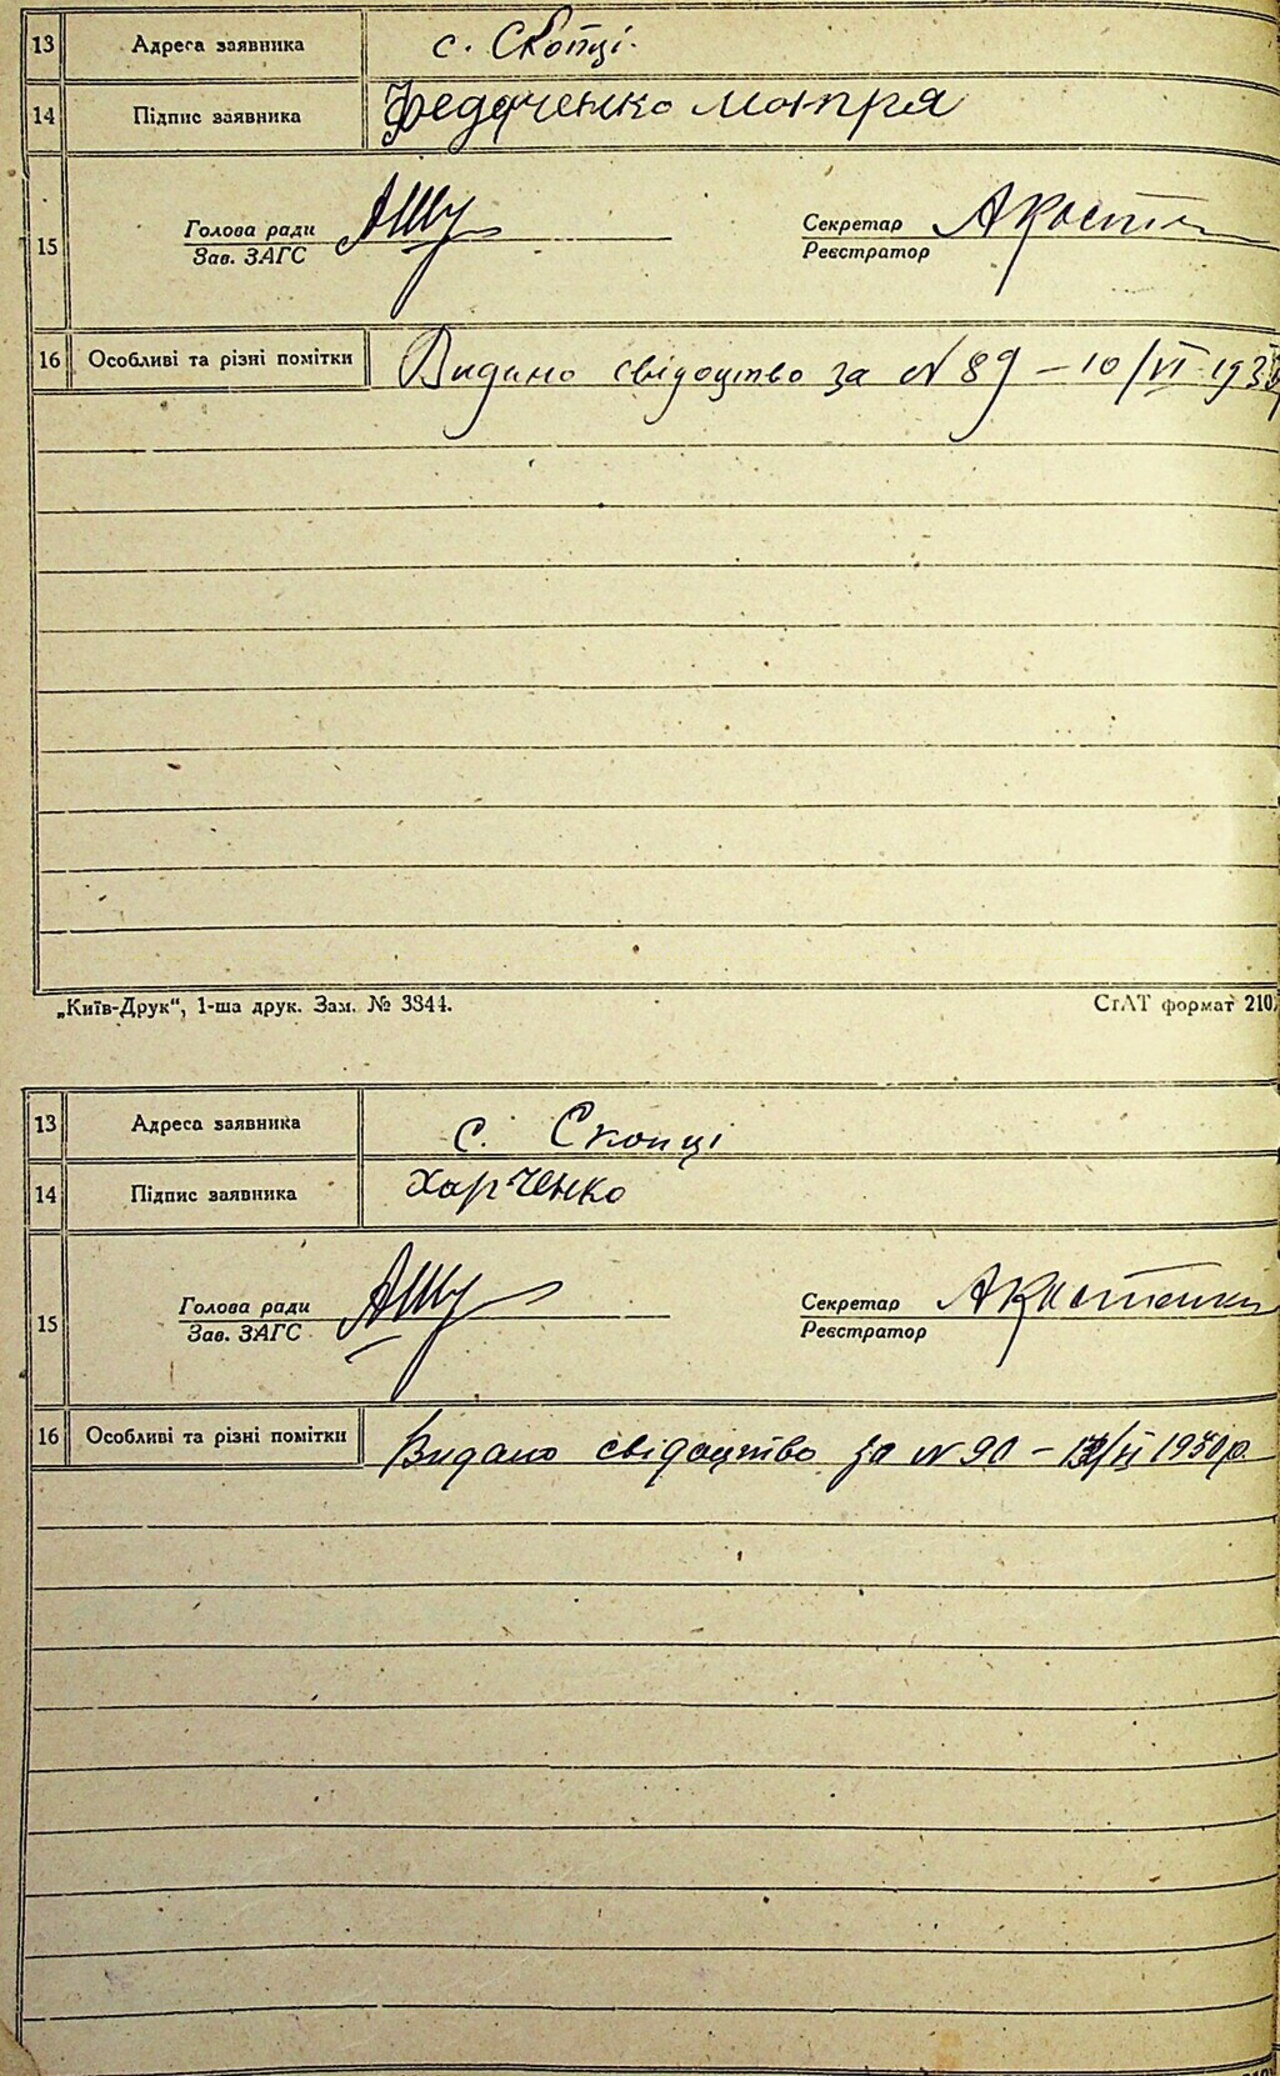 13 Адреса заявника с. Скопці.
14 Підпис заявника Федченко
15 Голова ради Секретар
Зав. ЗАГС Реєстратор
16 Особливі та різні помітки Видано свідоцтво за N 89 – 10/VI 193
„Київ-Друк“, 1-ша друк. Зам. № 3344. формат 210
13 Адреса заявника с. Скопці
14 Підпис заявника Харченко
15 Голова ради Секретар АКостенко
Зав. ЗАГС Реєстратор
16 Особливі та різні помітки Видано свідоцтво за N 90 –